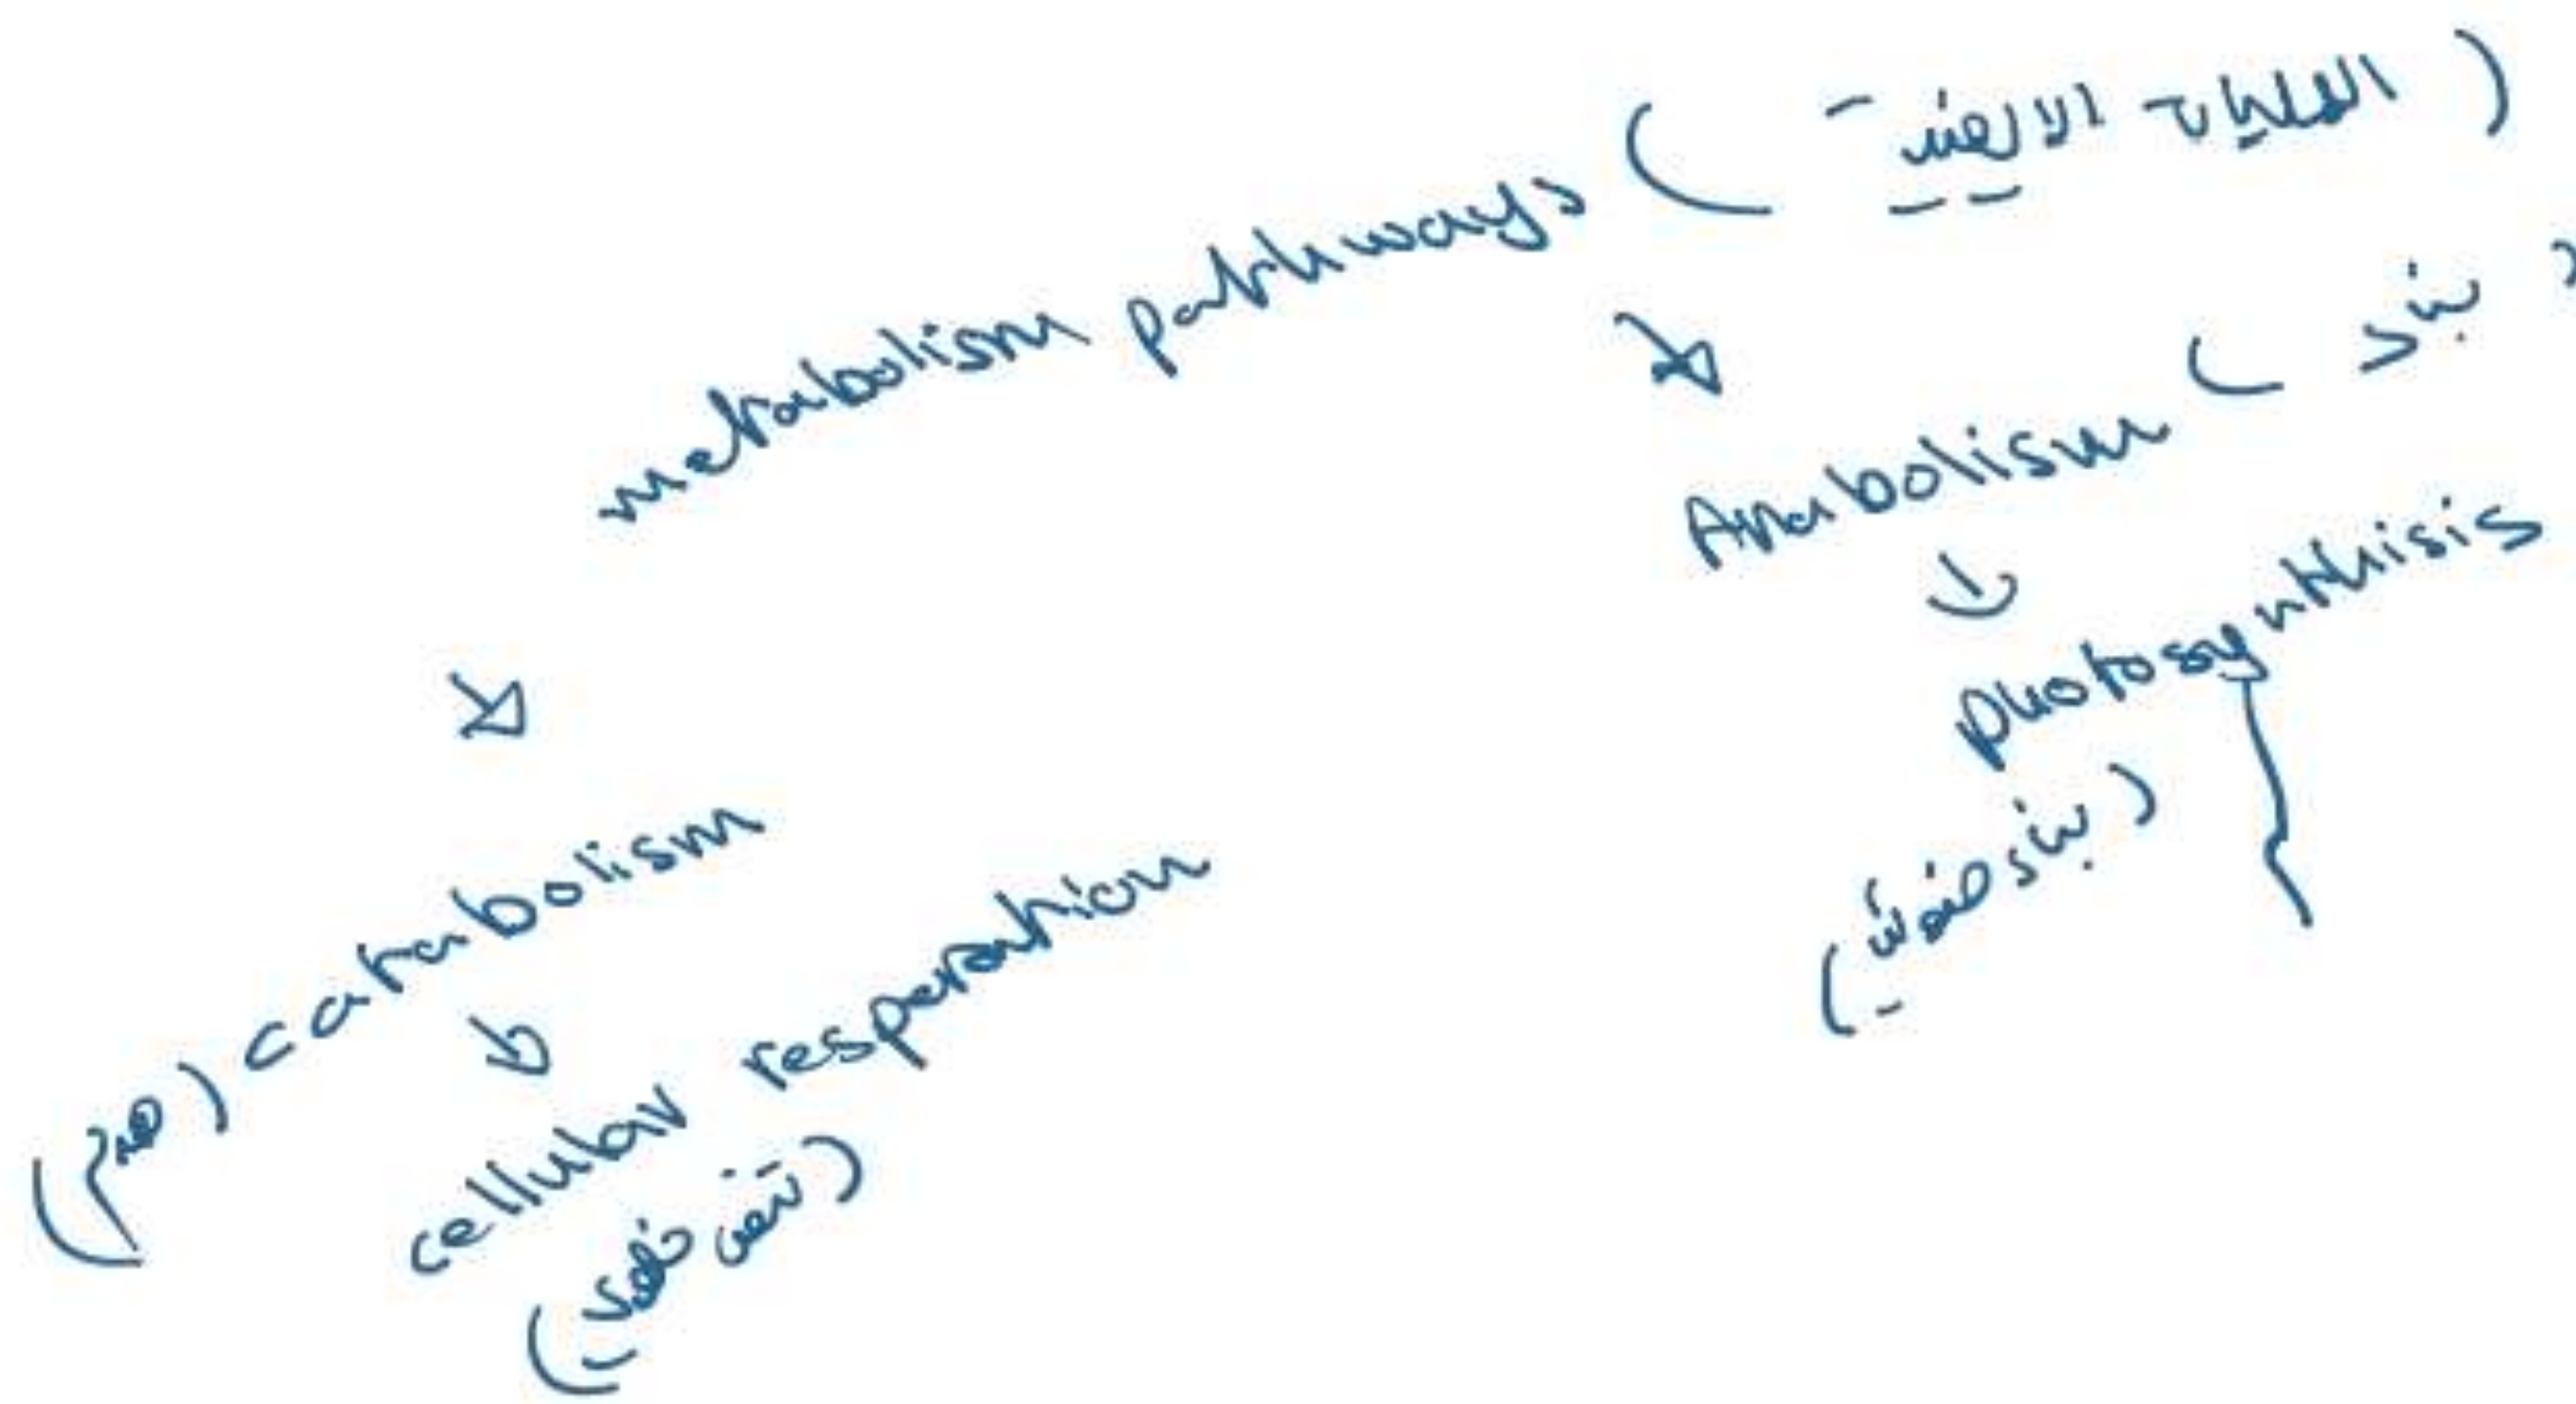 metabolism pathways (العمليات الايضية)
Anabolism (بناء)
photosynthisis
(بناء ضوئي)
catabolism (هدم)
cellular resperation
(تنفس خلوي)